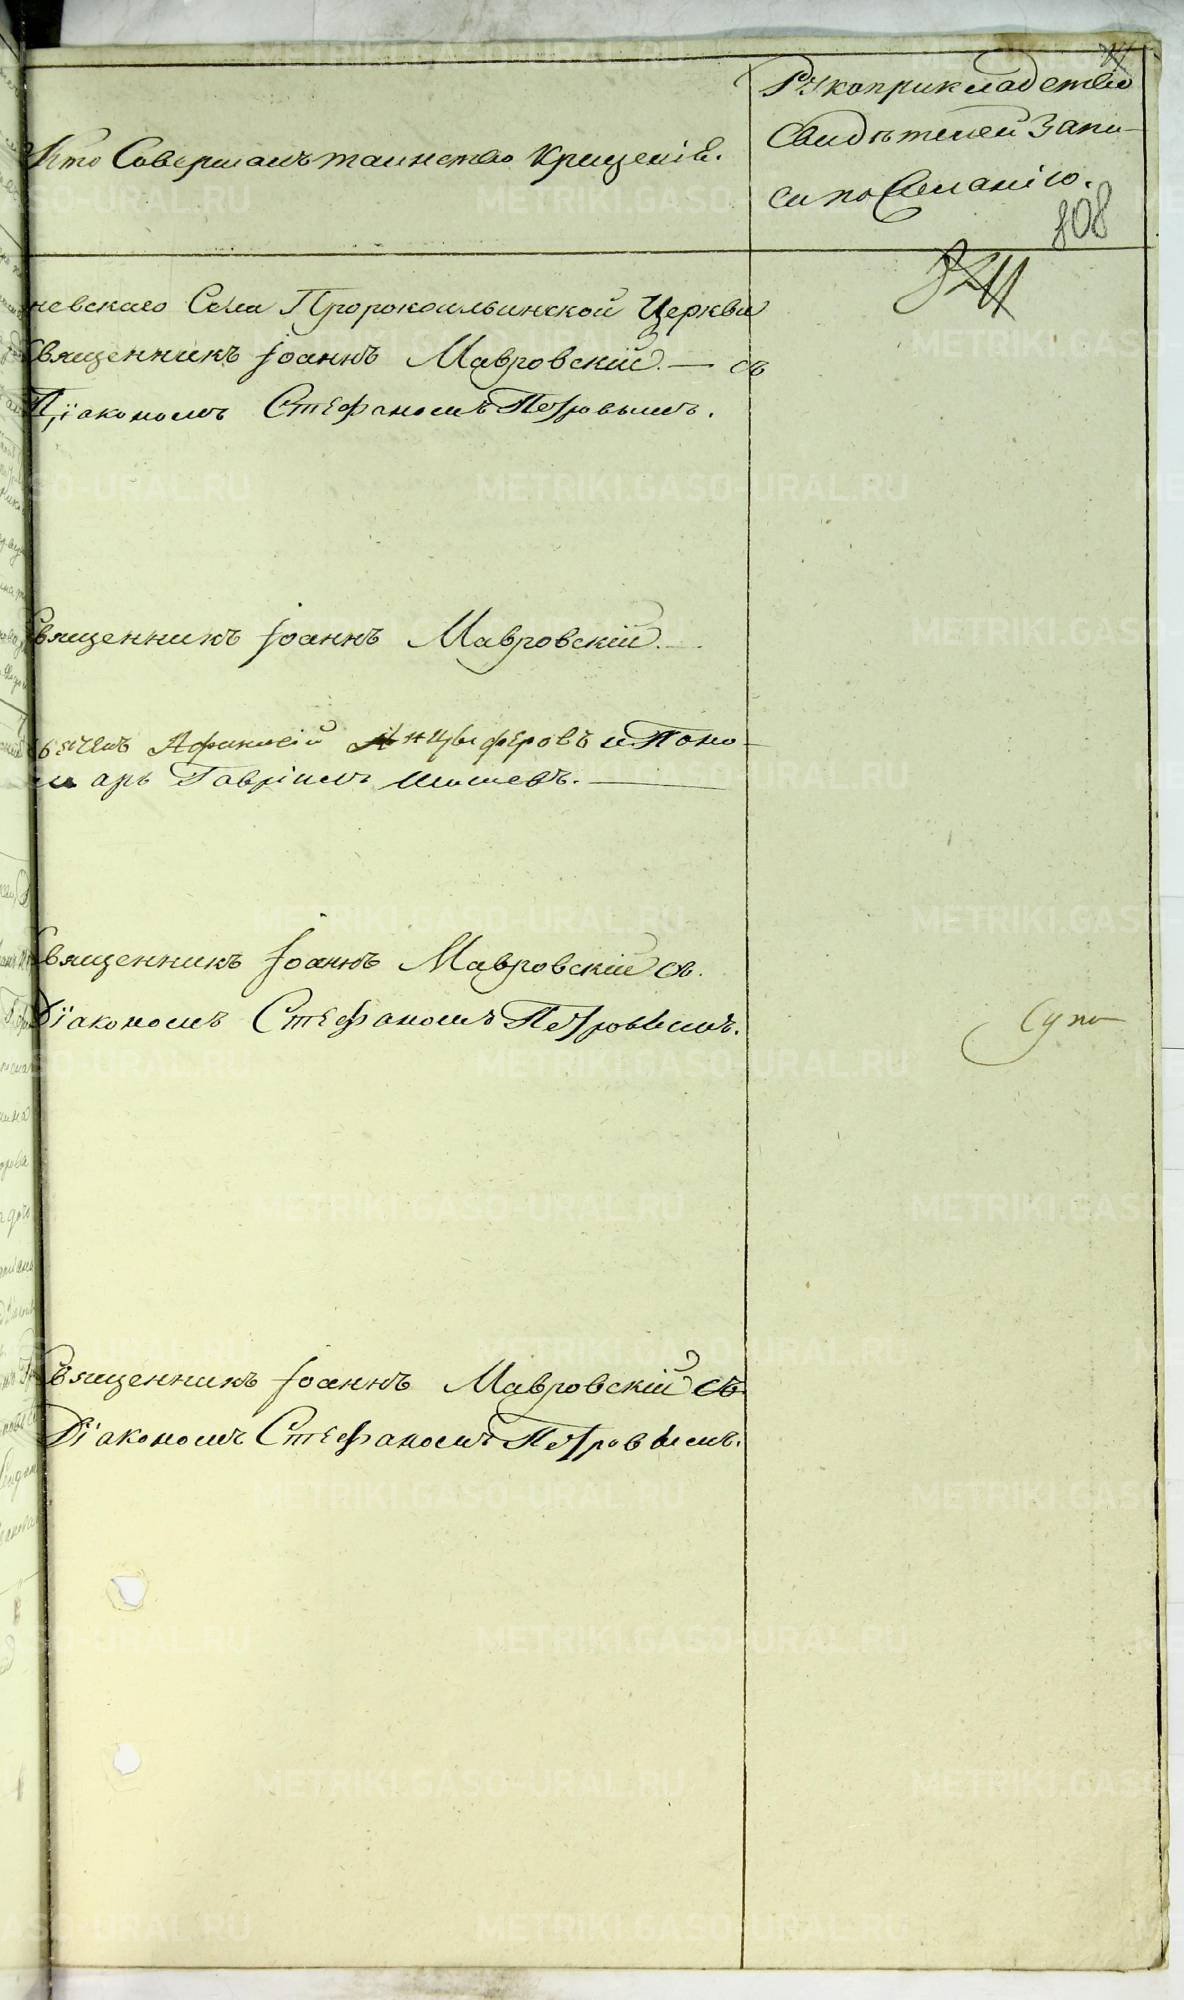 Кто Совершалъ таинство крещенія.
Рукоприкладство
Свидѣтелей Запи-
си по Желанію.
808
невскаго Села Пророкоильинской Церкви
Священникъ Іоаннъ Мавровскій. — съ
Діакономъ Стефаномъ Петровымъ.
Священникъ Іоаннъ Мавровскій.
Дьячекъ Афанасій Анцыферовъ и Поно-
марь Гавріилъ
Священникъ Іоаннъ Мавровскій съ.
Діакономъ Стефаномъ Петровымъ.
Священникъ Іоаннъ Мавровскій съ
Діакономъ Стефаномъ Петровымъ.
METRIKI.GASO-URAL.RU